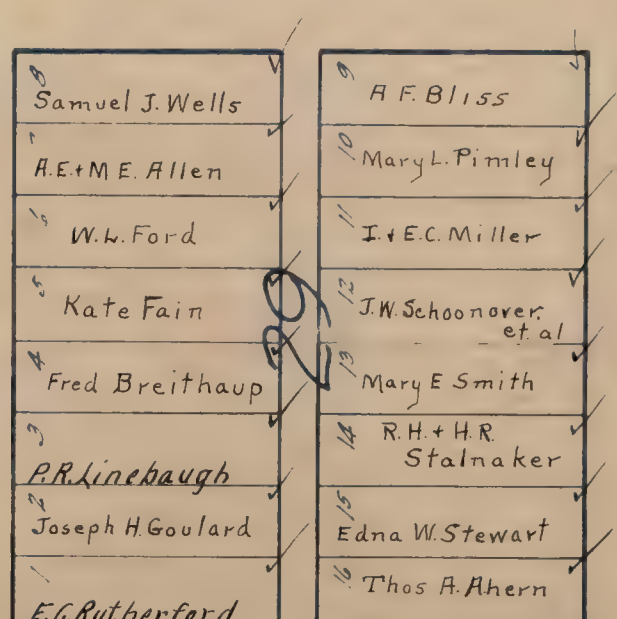 8
Samuel J. Wells
7
A.E. + M E. Allen
6
W.L. Ford
5
Kate Fain
4
Fred Breithaup
3
P.R. Linebaugh
2
Joseph H. Goulard
1
E.G. Rutherford
29
9
A F. Bliss
10
Mary L. Pimley
11
I. + E.C. Miller
12
J.W. Schoonover.
et. al
13
Mary E Smith
14
R.H. + H.R.
Stalnaker
15
Edna W. Stewart
16
Thos A. Ahern